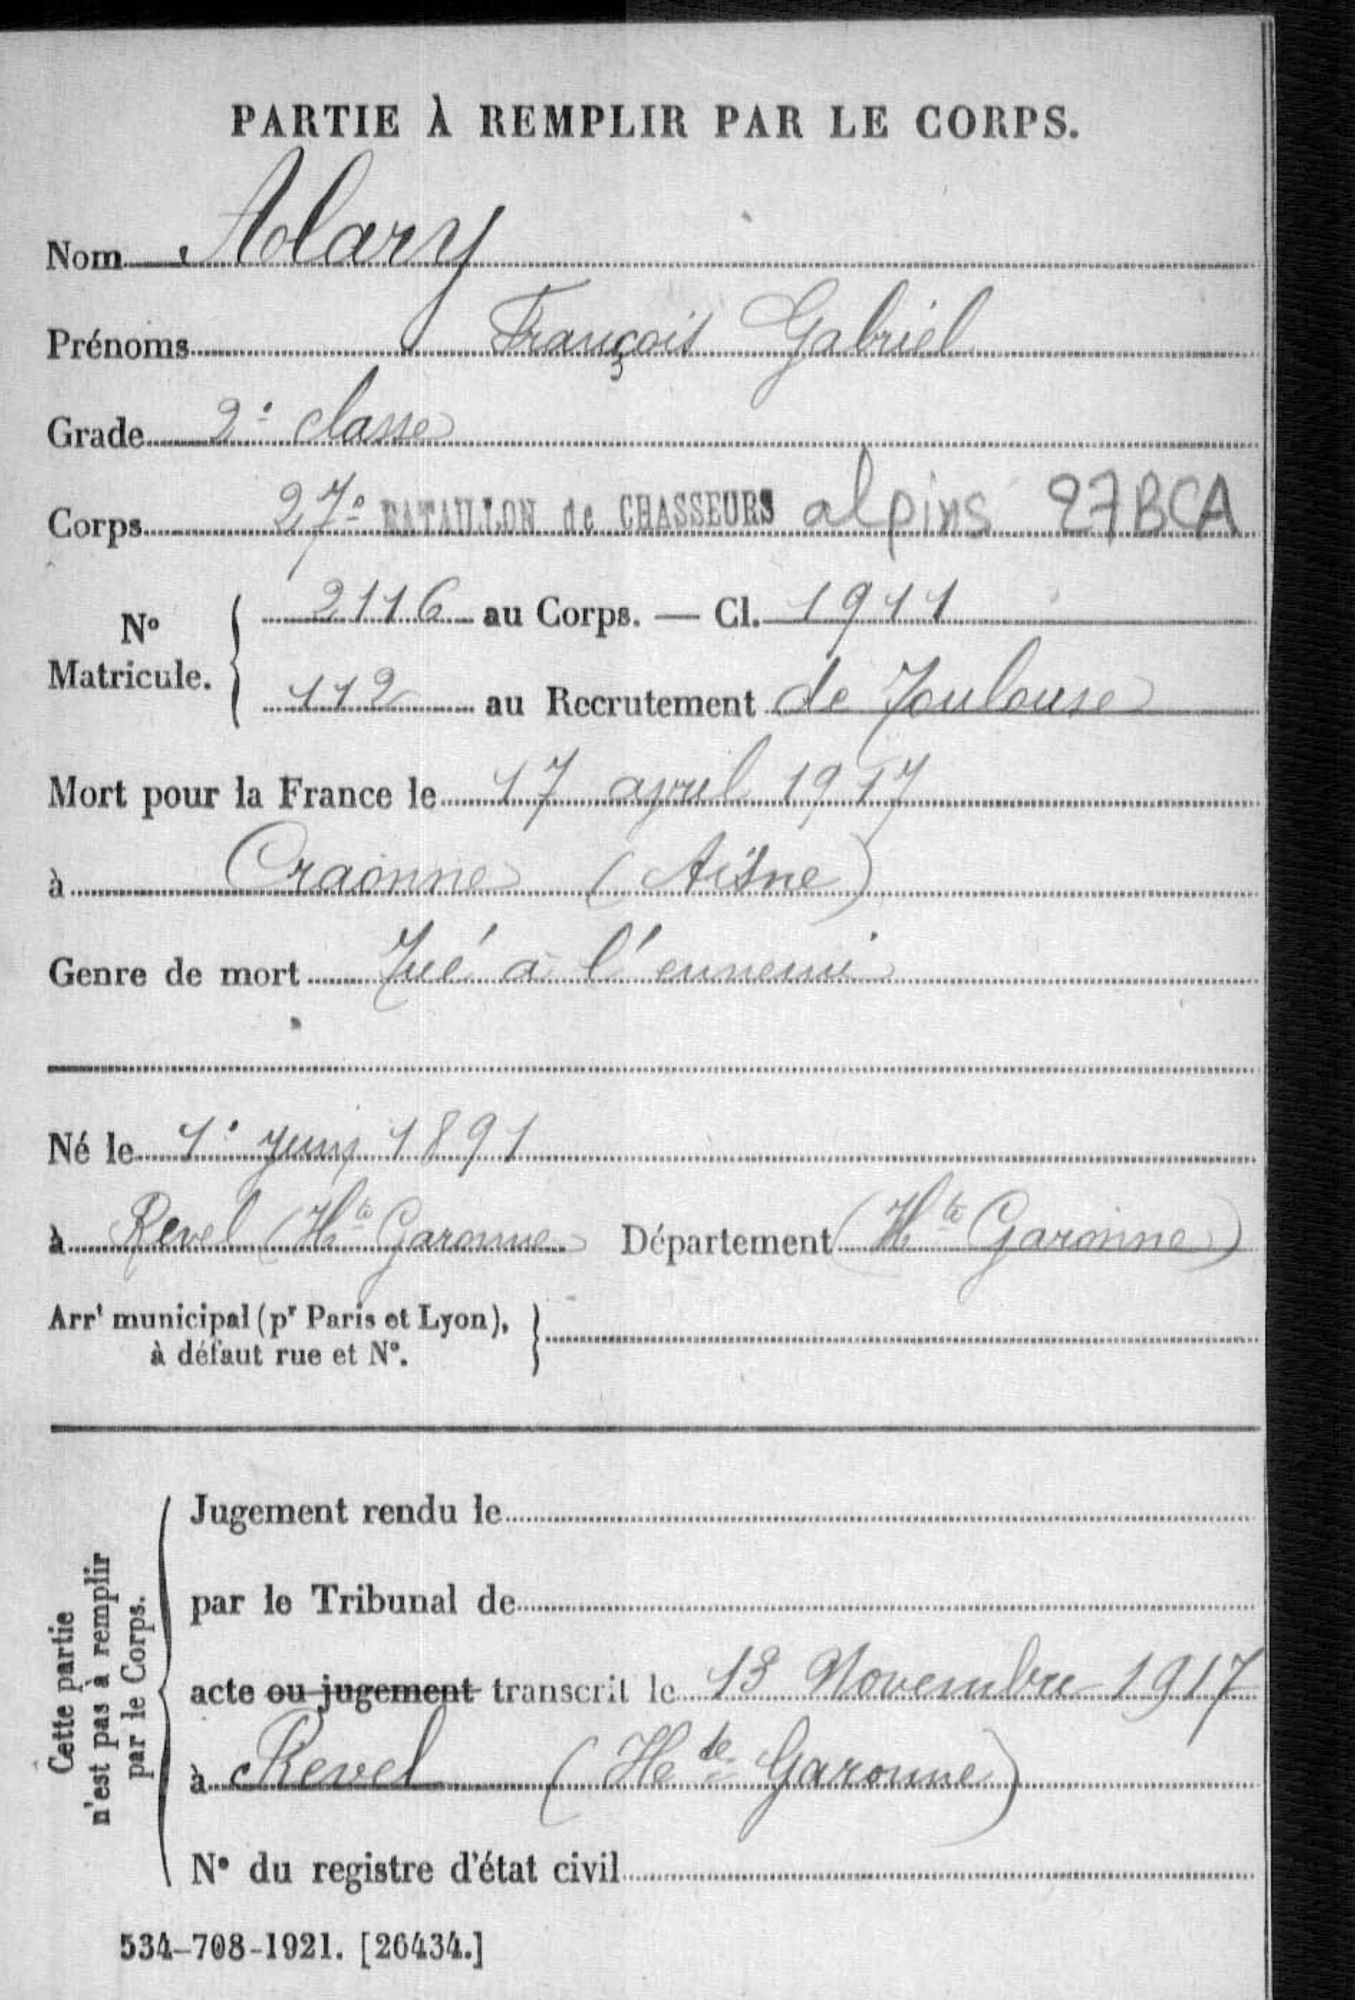 PARTIE À REMPLIR PAR LE CORPS.
Nom Alary
Prénoms François Gabriel
Grade 2e classe
Corps 27e BATAILLON de CHASSEURS alpins 27BCA
No Matricule. { 2116 au Corps. — Cl. 1911
112 au Recrutement de Toulouse
Mort pour la France le 17 avril 1917
à Craonne (Aisne)
Genre de mort Tué à l'ennemi
Né le 1er juin 1891
à Revel (Hte Garonne Département (Hte Garonne)
Arrt municipal (pr Paris et Lyon),
à défaut rue et No.
Cette partie
n'est pas à remplir
par le Corps.
Jugement rendu le
par le Tribunal de
acte ou jugement transcrit le 13 Novembre 1917
à Revel (Hte Garonne)
No du registre d'état civil
534-708-1921. [26434.]